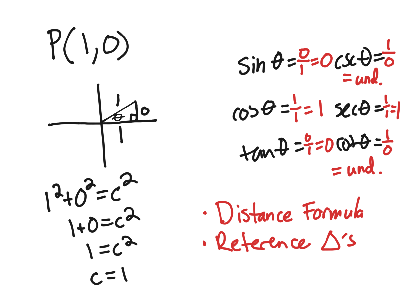 P(1,0)
1
0
θ
1
1²+0²=c²
1+0=c²
1=c²
c=1
sin θ=0/1=0 cscθ=1/0
=und.
cosθ=1/1=1 secθ=1/1=1
tanθ=0/1=0 cotθ=1/0
=und.
· Distance Formula
· Reference Δ's